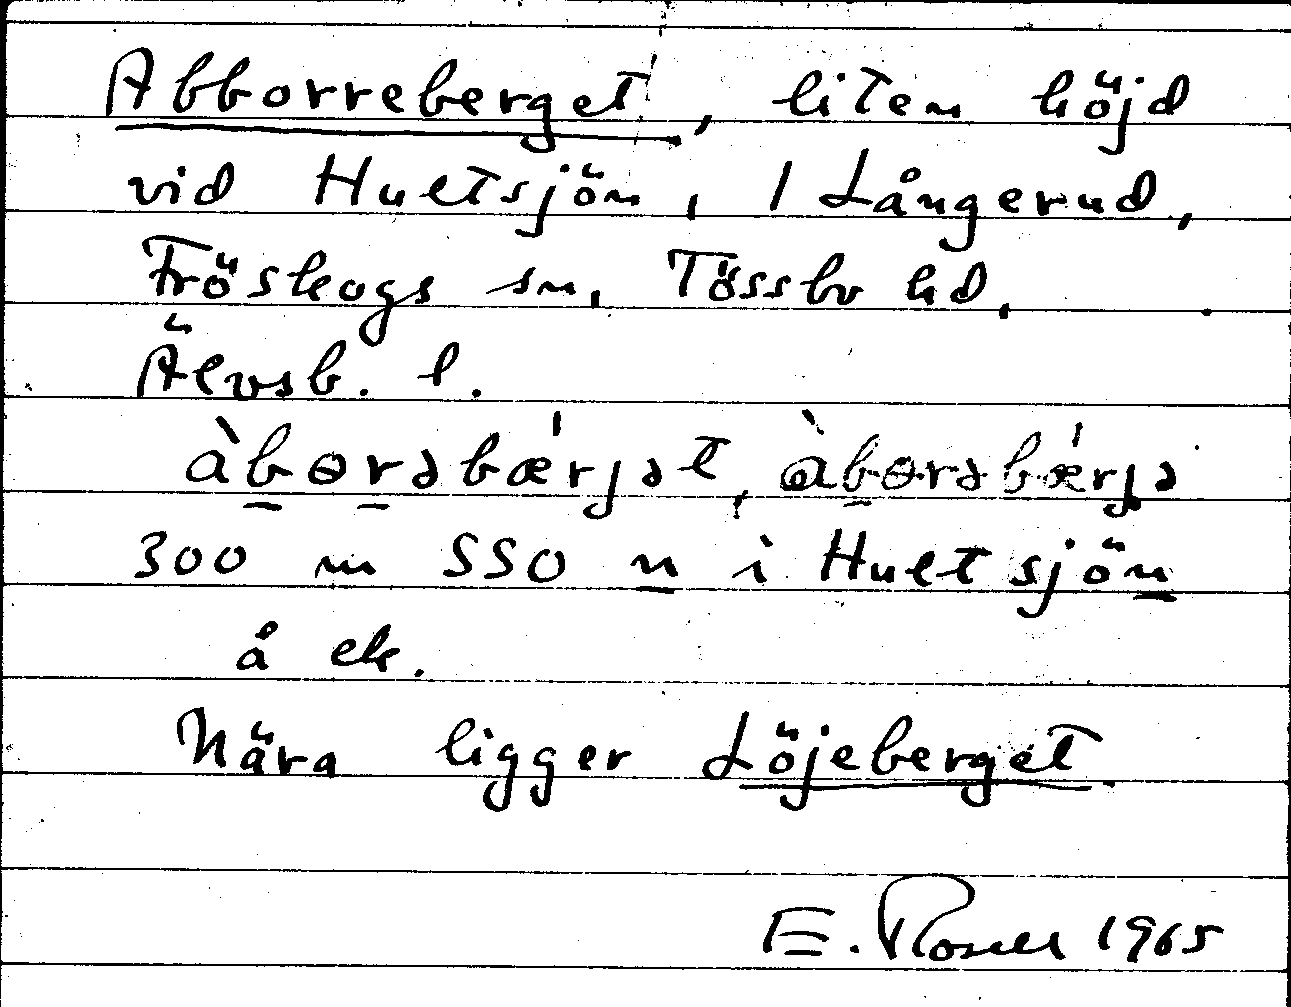 Abborreberget, liten höjd
vid Hultsjön, 1 Långerud,
Fröskogs sn, Tössbo hd,
Älvsb. l.
àbɵrəbǽrjət, àbɵrəbǽrjə
300 m SSO n i Hultsjön
å ek.
Nära ligger Löjeberget.
E. 1965